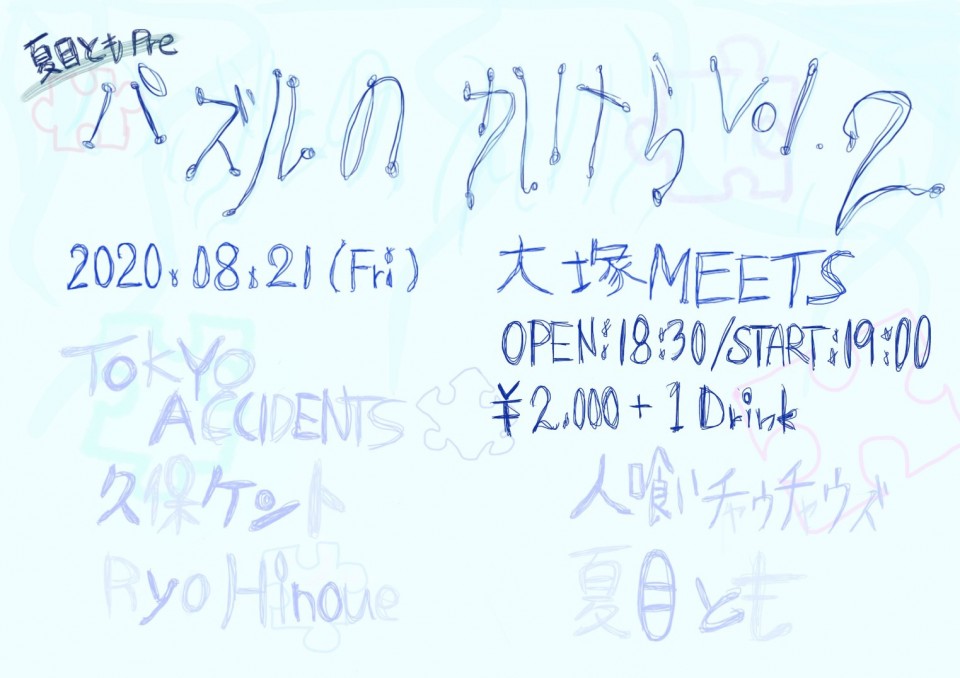 夏目とも Pre
パズルのかけら Vol.2
2020.08.21(Fri)
大塚MEETS
OPEN:18:30/START:19:00
¥2,000+1Drink
TOKYO
ACCIDENTS
久保ケント
人喰いチャウチャウズ
Ryo Hinoue
夏目とも